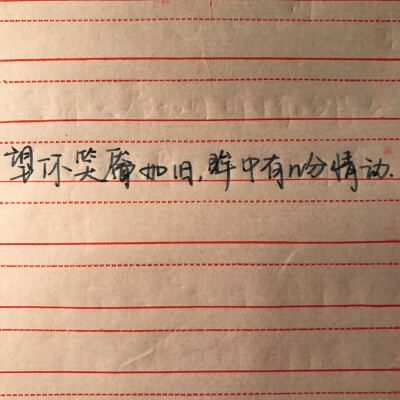 望你笑靥如旧,眸中有几分情动.